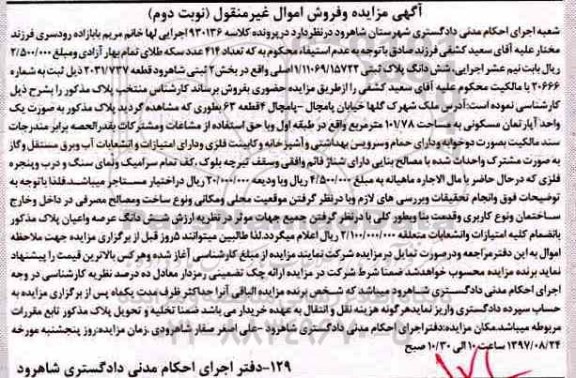 آگهی مزایده وفروش اموال غیرمنقول (نوبت دوم)
شعبه اجرای احکام مدنی دادگستری شهرستان شاهرود درنظردارد درپرونده کلاسه ۹۳۰۱۳۶ اجرایی لها خانم مریم بابازاده رودسری فرزند
مختار علیه آقای سعید کشفی فرزند صادق باتوجه به عدم استیفاء محکوم به که تعداد ۴۱۴ عدد سکه طلای تمام بهار آزادی ومبلغ ۲/۵۰۰/۰۰۰
ریال بابت نیم عشر اجرایی، شش دانگ پلاک ثبتی ۱/۱۱۰۶۹/۱۵۷۲۲ اصلی واقع در بخش ۲ ثبتی شاهرود قطعه ۲۰۳۱/۷۳۷ ذیل ثبت به شماره
۲۰۶۶۶ با مالکیت محکوم علیه آقای سعید کشفی را ازطریق مزایده حضوری بفروش برساند کارشناس منتخب پلاک مذکور را بشرح ذیل
کارشناسی نموده است: آدرس ملک شهرک گلها خیابان پامچال -پامچال ۴قطعه ۶۳ بطوری که مشاهده گردید پلاک مذکور به صورت یک
واحد آپارتمان مسکونی به مساحت ۱۰۱/۷۸ مترمربع واقع در طبقه اول وبا حق استفاده از مشاعات ومشترکات بقدرالحصه برابر مندرجات
سند مالکیت بصورت دوخوابه ودارای حمام وسرویس بهداشتی و آشپزخانه و کابینت فلزی ودارای امتیازات و انشعابات آب وبرق مستقل وگاز
به صورت مشترک واحداث شده با مصالح بنایی دارای شناژ قائم وافقی وسقف تیرچه بلوک ،کف تمام سرامیک ونمای سنگ و درب وپنجره
فلزی که درحال حاضر با مال الاجاره ماهیانه به مبلغ ۴/۵۰۰/۰۰۰ ریال وبا ودیعه ۲۰/۰۰۰/۰۰۰ ریال دراختیار مستاجر میباشد.فلذا باتوجه به
توضیحات فوق وانجام تحقیقات وبررسی های لازم وبا درنظر گرفتن موقعیت محلی ومکانی ونوع ساخت ومصالح مصرفی در داخل وخارج
ساختمان ونوع کاربری وقدمت بنا وبطور کلی با درنظر گرفتن جمیع جهات موثر در نظریه ارزش شش دانگ عرصه واعیان پلاک مذکور
بانضمام کلیه امتیازات وانشعابات متعلقه ۲/۱۰۰/۰۰۰/۰۰۰ ریال اعلام میگردد.لذا طالبین میتوانند ۵روز قبل از برگزاری مزایده جهت ملاحظه
اموال به این دفترمراجعه ودرصورت تمایل درمزایده شرکت نمایند مزایده از مبلغ کارشناسی آغاز شده وهرکس بالاترین قیمت را پیشنهاد
نماید برنده مزایده محسوب خواهدشد ضمنا شرط شرکت در مزایده ارائه چک تضمینی رمزدار معادل ده درصد نظریه کارشناسی در وجه
اجرای احکام مدنی دادگستری شاهرود میباشد که شخص برنده مزایده الباقی آنرا حداکثر ظرف مدت یکماه پس از برگزاری مزایده به
حساب سپرده دادگستری واریز نمایدهرگونه هزینه نقل و انتقال به عهده خریدار می باشد ضمنا تخلیه و تحویل پلاک مذکور تابع مقررات
مربوطه میباشد.مکان مزایده:دفتراجرای احکام مدنی دادگستری شاهرود -علی اصغر صفار شاهرودی .زمان مزایده:روز پنجشنبه مورخه
۱۳۹۷/۰۸/۲۴ ساعت ۱۰ الی ۱۰/۳۰ صبح
۱۲۹-دفتر اجرای احکام مدنی دادگستری شاهرود